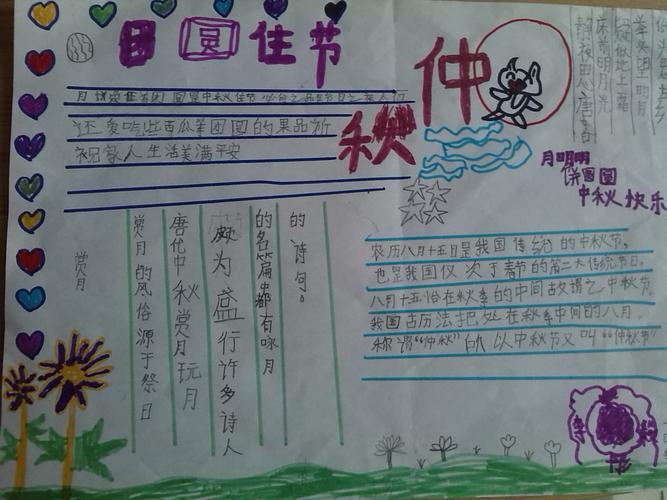 月圆佳节
仲秋
静夜思 唐
床前明月光
疑似地上霜
举头望明月
月明明
饼圆圆
中秋快乐
还爱吃些西瓜等团圆的果品祈
祝家人生活美满平安
赏月
赏月的风俗源于祭日
唐代中秋赏月玩月
颇为盛行许多诗人
的名篇中都有咏月
的诗句。
农历八月十五日是我国传统的中秋节,
也是我国仅次于春节的第二大传统节日。
八月十五恰在秋季的中间故谓之中秋节
我国古历法把处在秋季中间的八月。
称谓“仲秋”所以中秋节又叫“仲秋节”